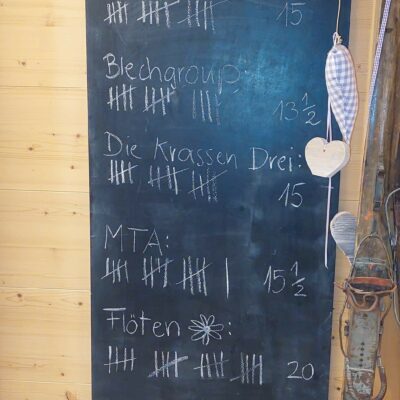 15
Blechgroup:
13 1/2
Die Krassen Drei:
15
MTA:
15 1/2
Flöten :
20